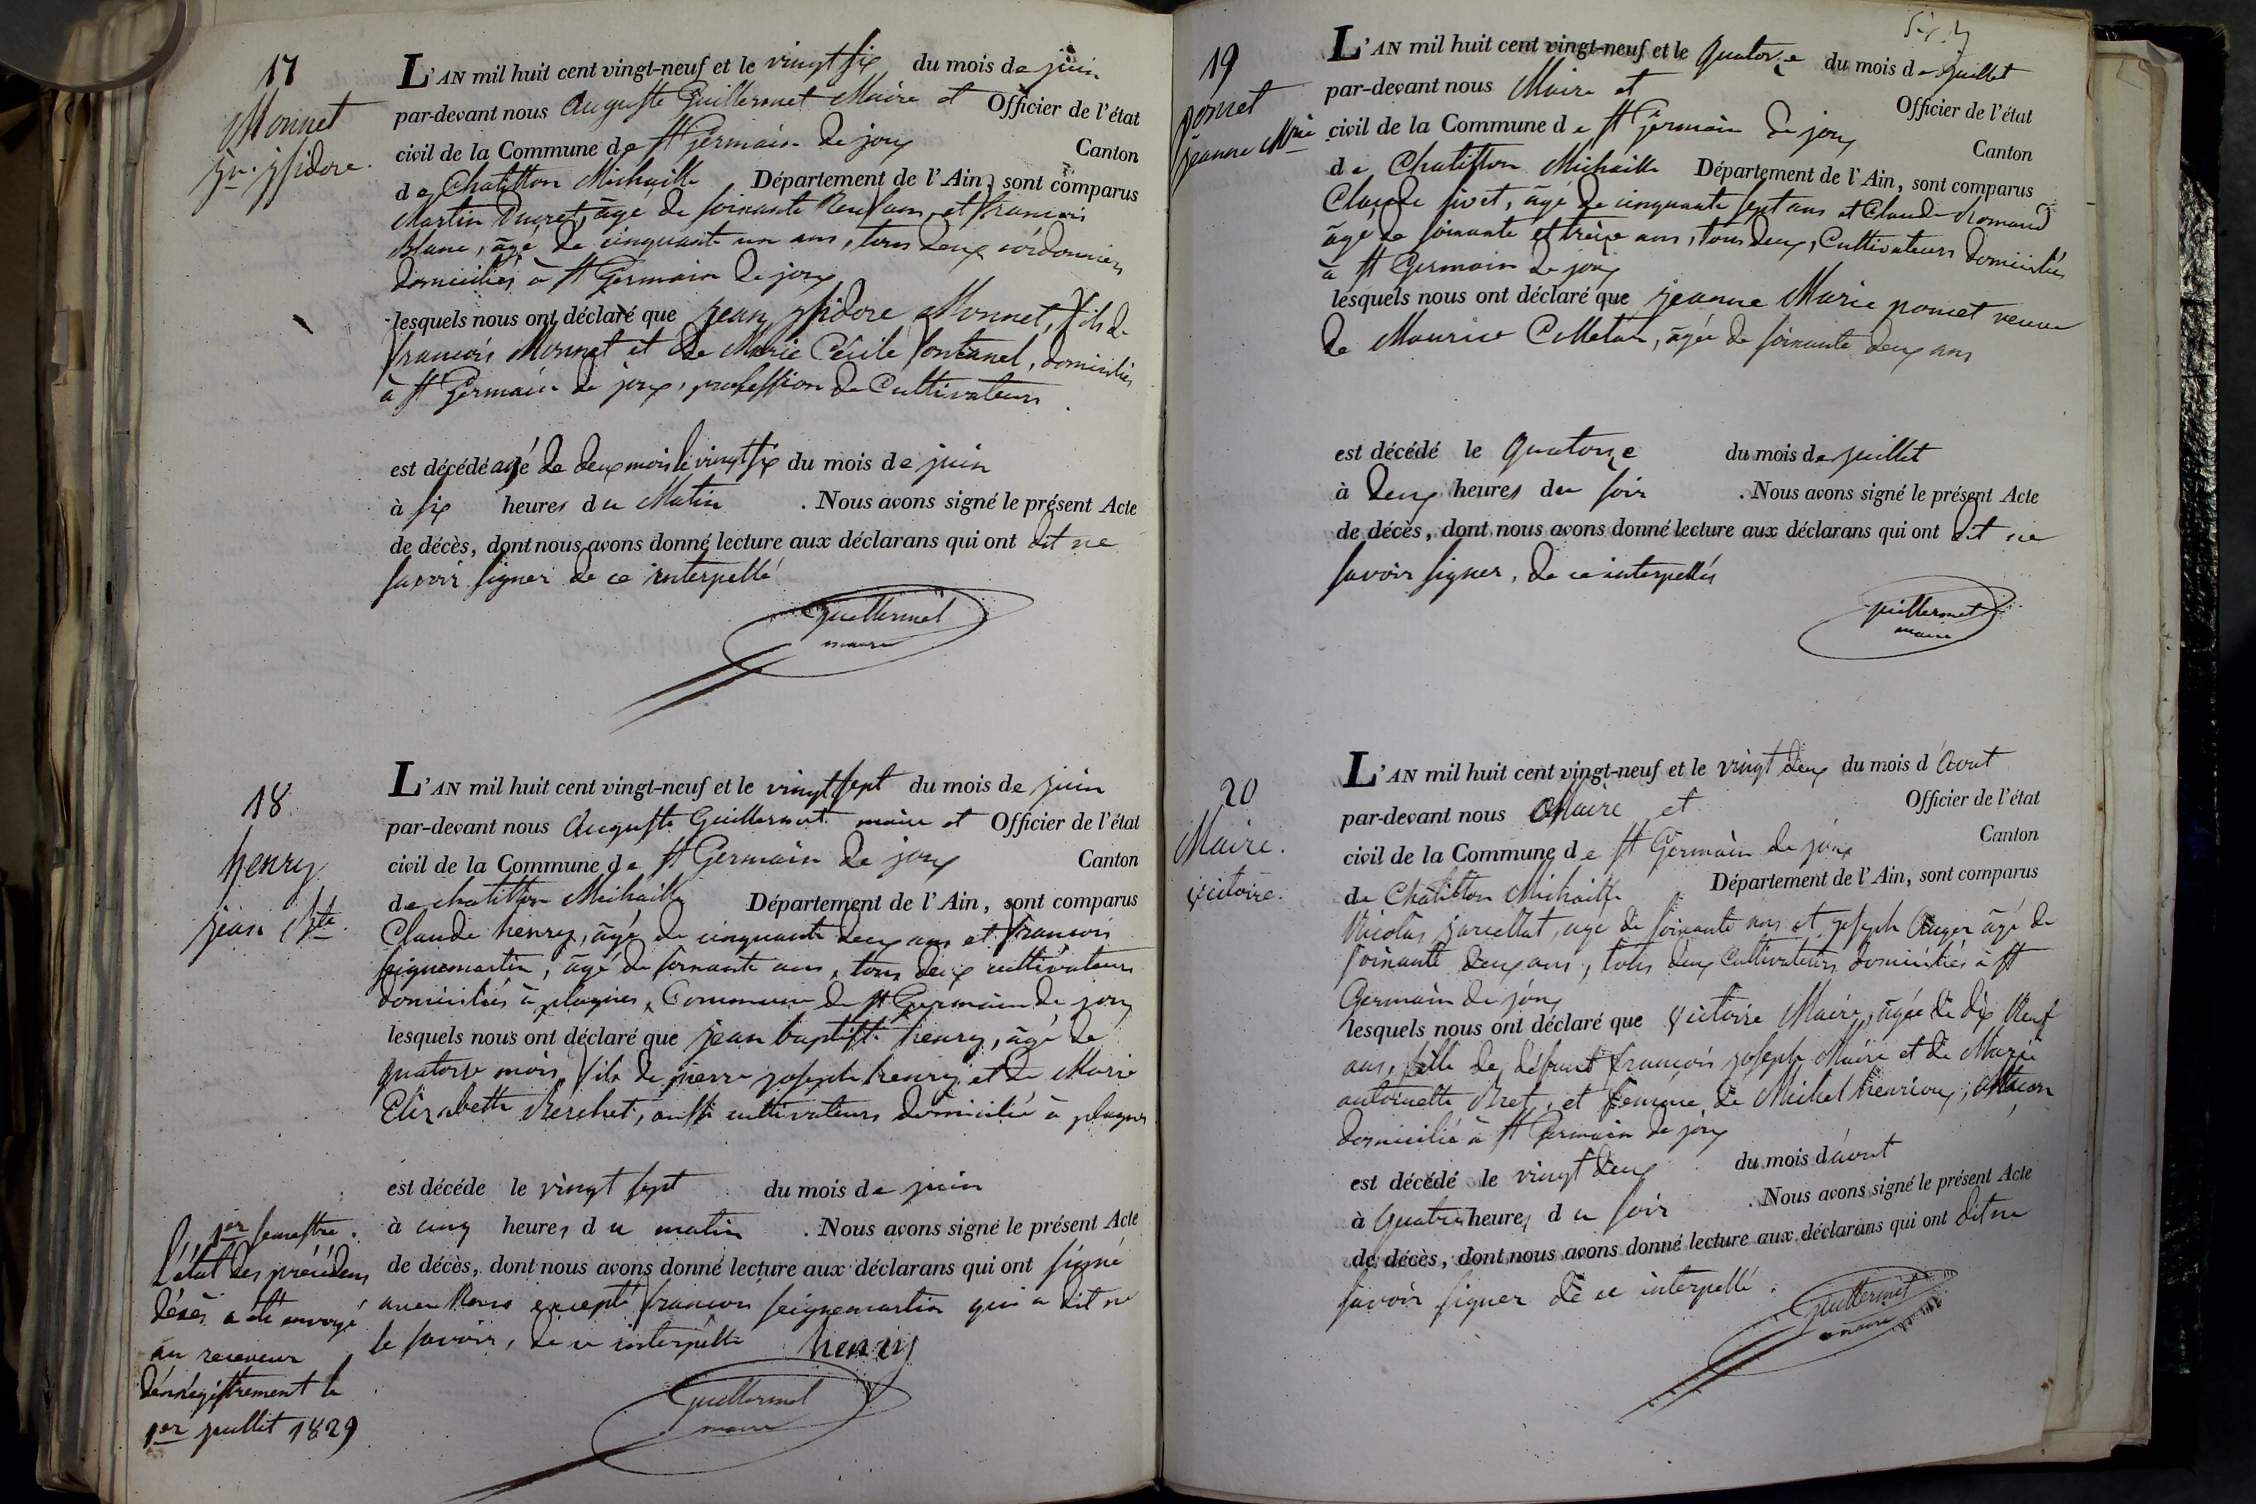 17
Monnet
jn. ysidore.
L'AN mil huit cent vingt-neuf et le vingt six du mois de juin
par-devant nous Auguste Guillermet Maire et Officier de l'état
civil de la Commune de St Germain de joux Canton
de Chatillon Michaille Département de l'Ain, sont comparus
Martin Ducret, âgé de soixante neuf ans, et francois
Blanc, âgé de cinquante un ans, tous deux cordonniers
domiciliés à St Germain de joux
lesquels nous ont déclaré que jean ysidore Monnet, fils de
francois Monnet et de Marie Cécile fontanel, domiciliés
à St Germain de joux, profession de Cultivateurs
est décédé agé de deux mois le vingt six du mois de juin
à six heures du Matin . Nous avons signé le présent Acte
de décès, dont nous avons donné lecture aux déclarans qui ont dit ne
savoir signer de ce interpellé
Guillermet
maire
18
henry
jean Bte.
L'AN mil huit cent vingt-neuf et le vingt sept du mois de juin
par-devant nous Auguste Guillermet maire et Officier de l'état
civil de la Commune de St Germain de joux Canton
de chatillon Michaille Département de l'Ain, sont comparus
Claude henry, âgé de cinquante deux ans et francois
seignemartin, âgé de soixante ans, tous deux cultivateurs
domiciliés à plagnes, Commune de St Germain de joux
lesquels nous ont déclaré que jean baptiste henry, âgé de
quatorze mois, fils de pierre joseph henry et de Marie
Elizabeth Berchet, aussi cultivateurs domicilié à plagnes
est décéde le vingt sept du mois de juin
à cinq heures du matin . Nous avons signé le présent Acte
de décès, dont nous avons donné lecture aux déclarans qui ont signé
avec Nous excepté francois seignemartin qui a dit ne
le savoir, de ce interpellé henry
Guillermet
maire
1er semestre.
L'état des précédens
décès a été envoyé
au receveur
d'enrégistrement le
1er juillet 1829
19
ponet
jeanne Mrie
L'AN mil huit cent vingt-neuf et le quatorze du mois de juillet
par-devant nous Maire et Officier de l'état
civil de la Commune de St Germain de joux Canton
de Chatillon Michaille Département de l'Ain, sont comparus
Claude sivet, âgé de cinquante sept ans et Claude Romand
âgé de soixante et treize ans, tous deux, Cultivateurs domiciliés
à St Germain de joux
lesquels nous ont déclaré que jeanne Marie poncet veuve
de Maurice Colletaz, âgée de soixante deux ans
est décédé le quatorze du mois de juillet
à deux heures du soir . Nous avons signé le présent Acte
de décès, dont nous avons donné lecture aux déclarans qui ont dit ne
savoir signer, de ce interpellés
guillermet
maire
20
Maire.
victoire.
L'AN mil huit cent vingt-neuf et le vingt deux du mois d'Aout
par-devant nous Maire et Officier de l'état
civil de la Commune de St Germain de joux Canton
de Chatillon Michaille Département de l'Ain, sont comparus
Nicolas jarcellat, age de soixante ans et joseph Auger âgé de
soixante deux ans, tous deux Cultivateurs domiciliés à St
Germain de joux
lesquels nous ont déclaré que Victoire Maire, âgée de dix Neuf
ans, fille de, défunt francois joseph Maire et de Marie
antoinette Bret, et femme de Michel henrioux, Macon
domicilié à St Germain de joux
est décédé le vingt deux du mois d'aout
à quatre heures du soir . Nous avons signé le présent Acte
de décès, dont nous avons donné lecture aux déclarans qui ont dit ne
savoir signer de ce interpellé.
Guillermet
maire